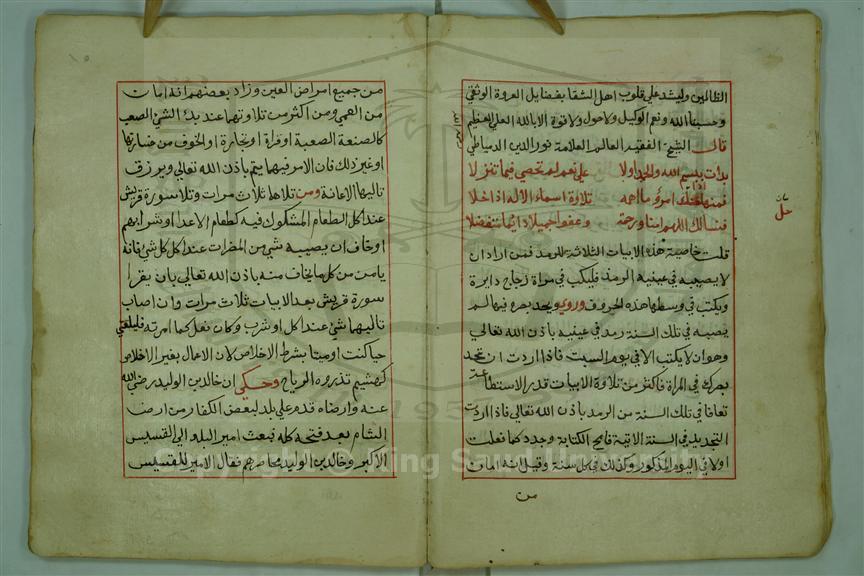 الظالمين وليشد على قلوب اهل الشقا بفضايل العروة الوثقي
وحسبنا الله ونعم الوكيل ولاحول ولا قوة الا بالله العلي العظيم
قال الشيخ الفقيه العالم العلامة نور الدين الدمياطي
بدات ببسم الله والحمد اولا على نعم لم تحصى فيما تنزلا
تلاوة اسماء الاله اذا خلا
فنسالك اللهم امنا ورحمة وعفوا جميلا دايما متفضلا
قلت خاصية هذه الابيات الثلاثة للرمد فمن اراد ان
لا يصيبه في عينيه الرمد فليكتب في مراة زجاج دايرة
ويكتب في وسطها هذه الحروف ويحد بصره فيها لم
يصبه في تلك السنة رمد في عينيه باذن الله تعالى
وهو ان لا يكتب الا في يوم السبت فاذا اردت ان تحد
بصرك في المراة فاكثر من تلاوة الابيات قدر الاستطاعة
تعافا في تلك السنة من الرمد باذن الله تعالى فاذا اردت
التجديد في السنة الاتية فامح الكتابة وجدد كما فعلت
اولا في اليوم المذكور وكذلك في كل سنة وقيل انه امان
من
من جميع امراض العين وزاد بعضهم انه امان
من العمي ومن اكثر من تلاوتهما عند بدء الشئ الصعب
كالصنعة الصعبة او قراة او تجارة او الخوف من خسارتها
او غير ذلك فان الامر فيها يتم باذن الله تعالى ويرزق
تاليها الاعانة ومن تلاها ثلاث مرات وتلا سورة قريش
عند اكل الطعام المشكوك فيه كطعام الاعدا او شرابهم
او خاف ان يصيبه شي من المضرات عند اكل كل شي فانه
يامن من كل ما يخاف منه باذن الله تعالى بان يقرا
سورة قريش بعد الابيات ثلاث مرات وان اصاب
تاليها شئ عند اكل او شرب وكان فعل كما امرته فليلقني
حيا كنت او ميتا بشرط الاخلاص لان الاعمال بغير الاخلاص
كهشيم تذروه الرياح وحكي ان خالد بن الوليد رضي الله
عنه وارضاه قدم على بلد لبعض الكفار من ارض
الشام بعد فتحه كله فبعث امير البلد الي القسيس
الاكبر وخالد بن الوليد محاصرهم فقال الامير للقسيس
Copyright © King Saud University
1957